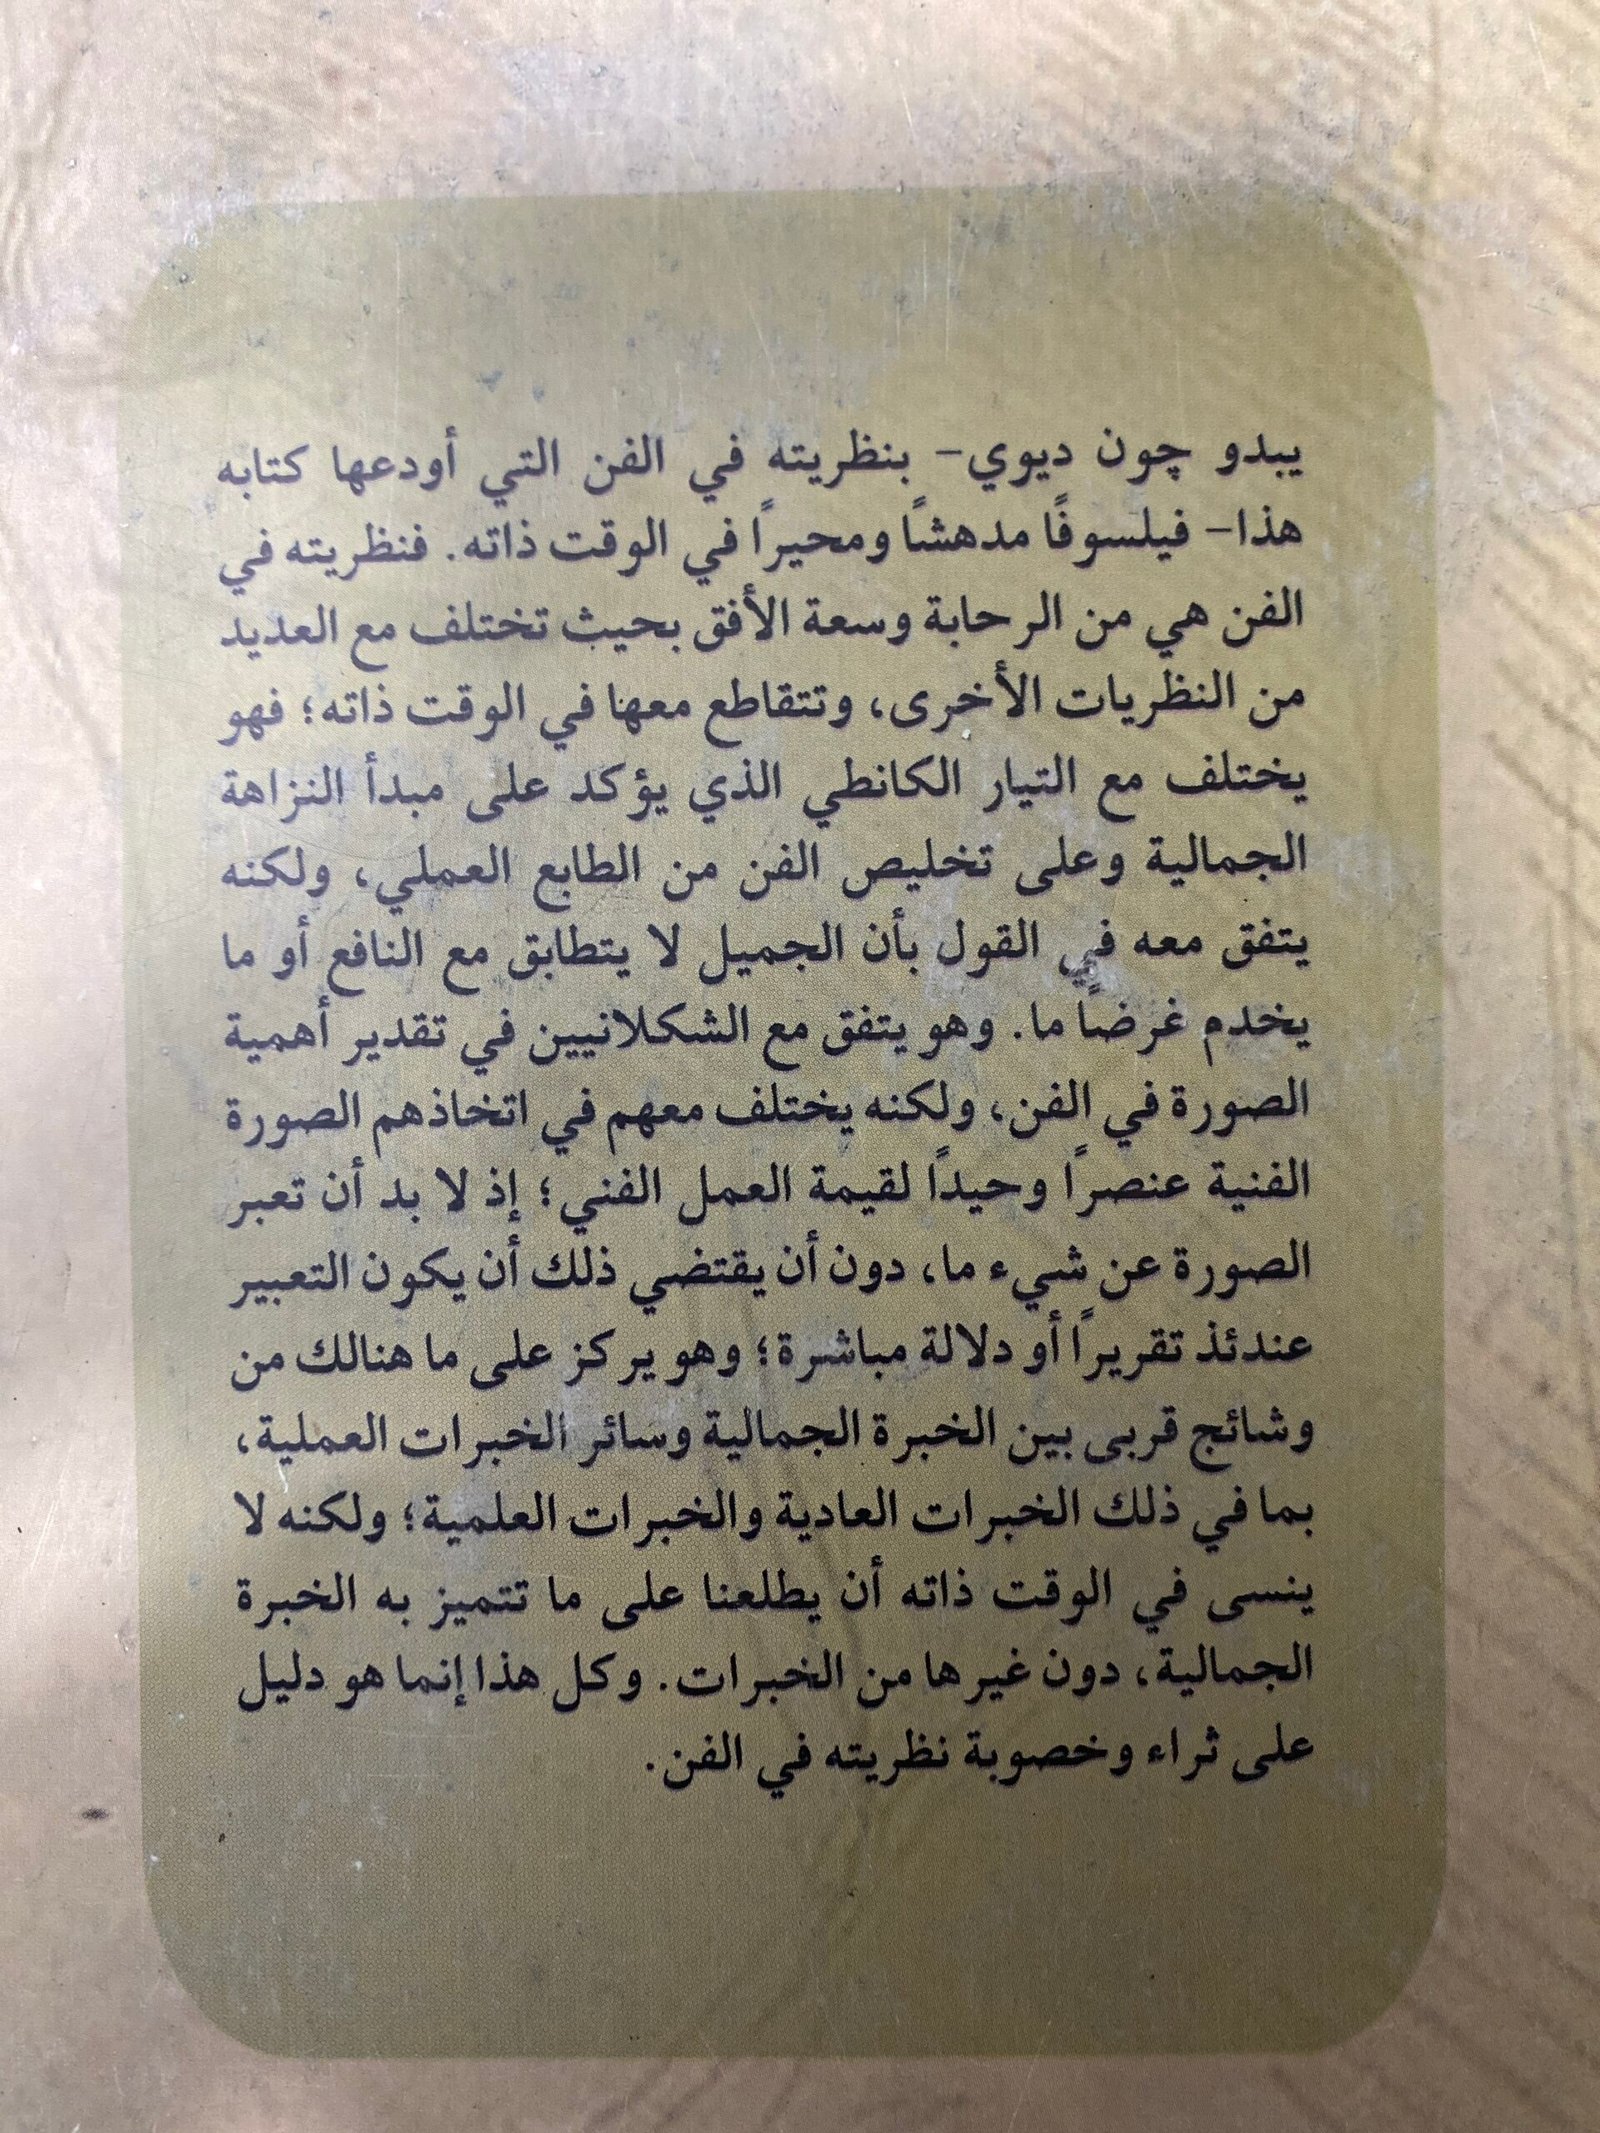 يبدو چون ديوي- بنظريته في الفن التي أودعها كتابه
هذا- فيلسوفًا مدهشًا ومحيرًا في الوقت ذاته. فنظريته في
الفن هي من الرحابة وسعة الأفق بحيث تختلف مع العديد
من النظريات الأخرى، وتتقاطع معها في الوقت ذاته؛ فهو
يختلف مع التيار الكانطي الذي يؤكد على مبدأ النزاهة
الجمالية وعلى تخليص الفن من الطابع العملي، ولكنه
يتفق معه في القول بأن الجميل لا يتطابق مع النافع أو ما
يخدم غرضًا ما. وهو يتفق مع الشكلانيين في تقدير أهمية
الصورة في الفن، ولكنه يختلف معهم في اتخاذهم الصورة
الفنية عنصرًا وحيدًا لقيمة العمل الفني؛ إذ لا بد أن تعبر
الصورة عن شيء ما، دون أن يقتضي ذلك أن يكون التعبير
عندئذ تقريرًا أو دلالة مباشرة؛ وهو يركز على ما هنالك من
وشائج قربى بين الخبرة الجمالية وسائر الخبرات العملية،
بما في ذلك الخبرات العادية والخبرات العلمية؛ ولكنه لا
ينسى في الوقت ذاته أن يطلعنا على ما تتميز به الخبرة
الجمالية، دون غيرها من الخبرات. وكل هذا إنما هو دليل
على ثراء وخصوبة نظريته في الفن.